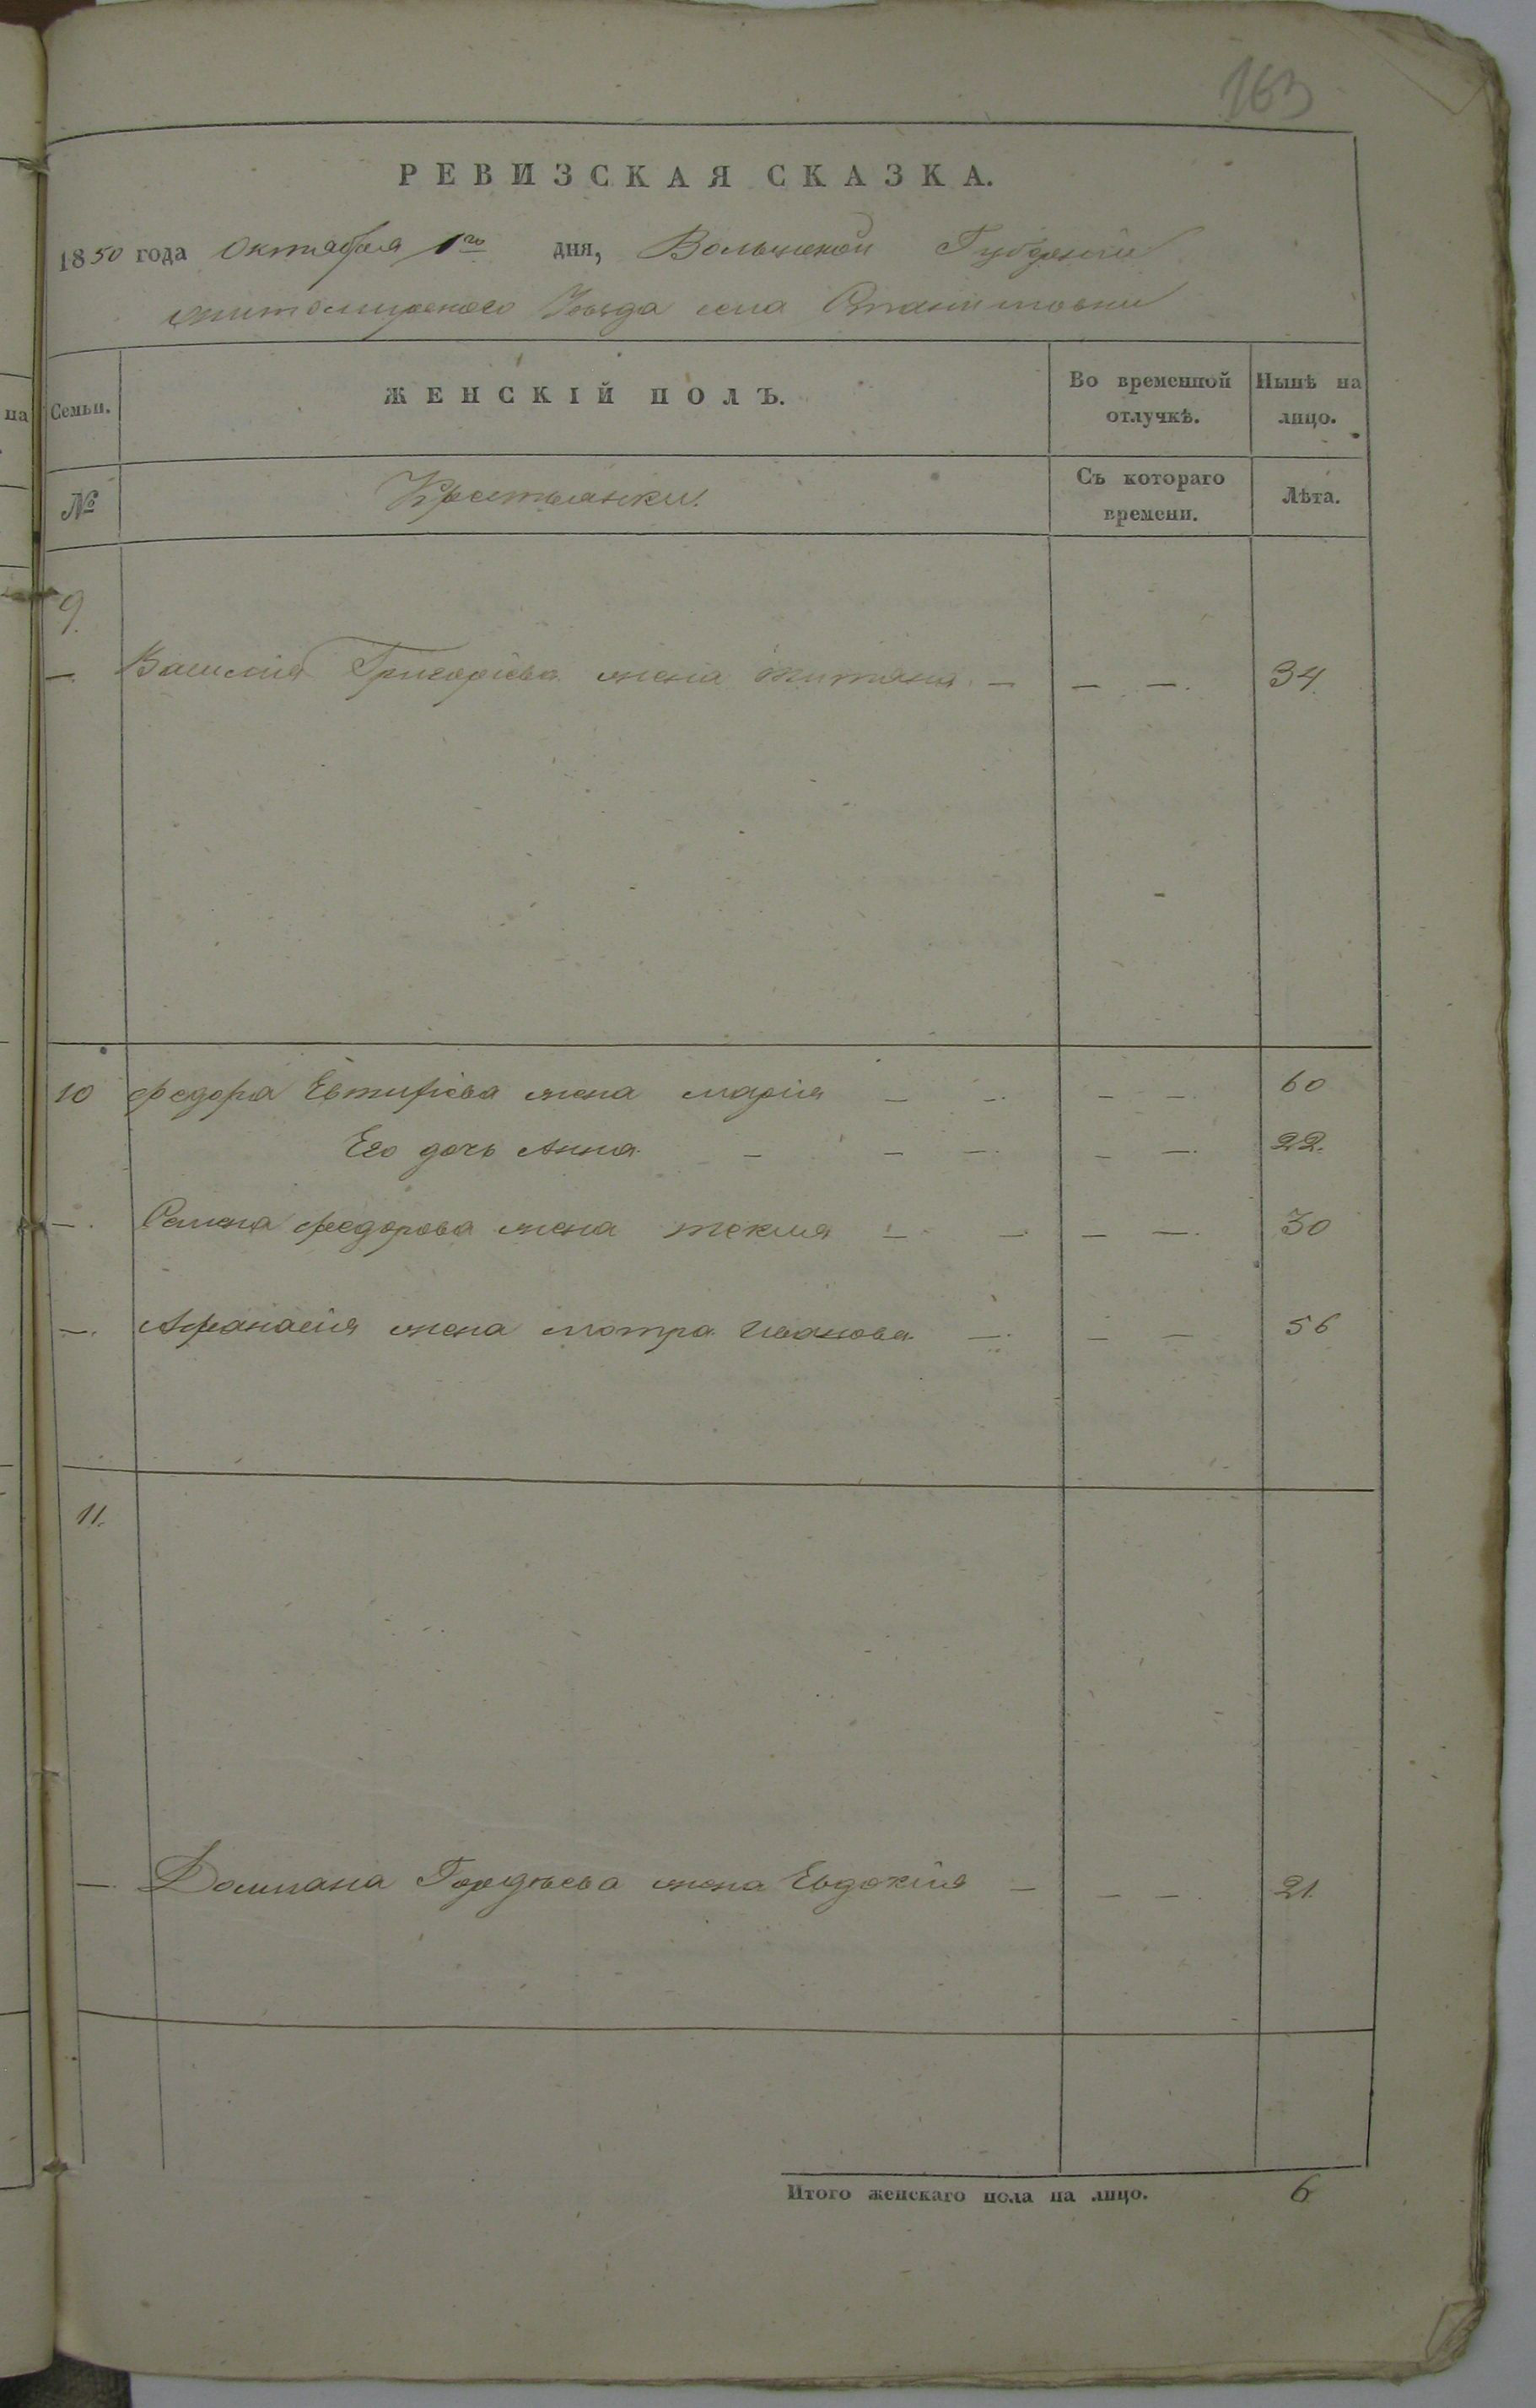 163
РЕВИЗСКАЯ СКАЗКА.
1850 года Октября 1го дня, Волынской Губерніи
Житомирскаго Уезда села
Семьи. ЖЕНСКІЙ ПОЛЪ. Во временной отлучкѣ. Нынѣ на лицо.
№ Крестьянки. Съ котораго времени. Лѣта.
9.
—. Василія Григоріева жена Титяна — — —. 34
10 Федора Евтифіева жена Марія — —. — —. 60
Его дочь Анна — — —. — —. 22.
—. Семена Федорова жена Текля — — — —. 30
—. Афанасія жена Мотра Иванова —. — — 56
11.
—. Домиана Гордѣева жена Евдокія — — —. 21.
Итого женскаго пола на лицо. 6
на